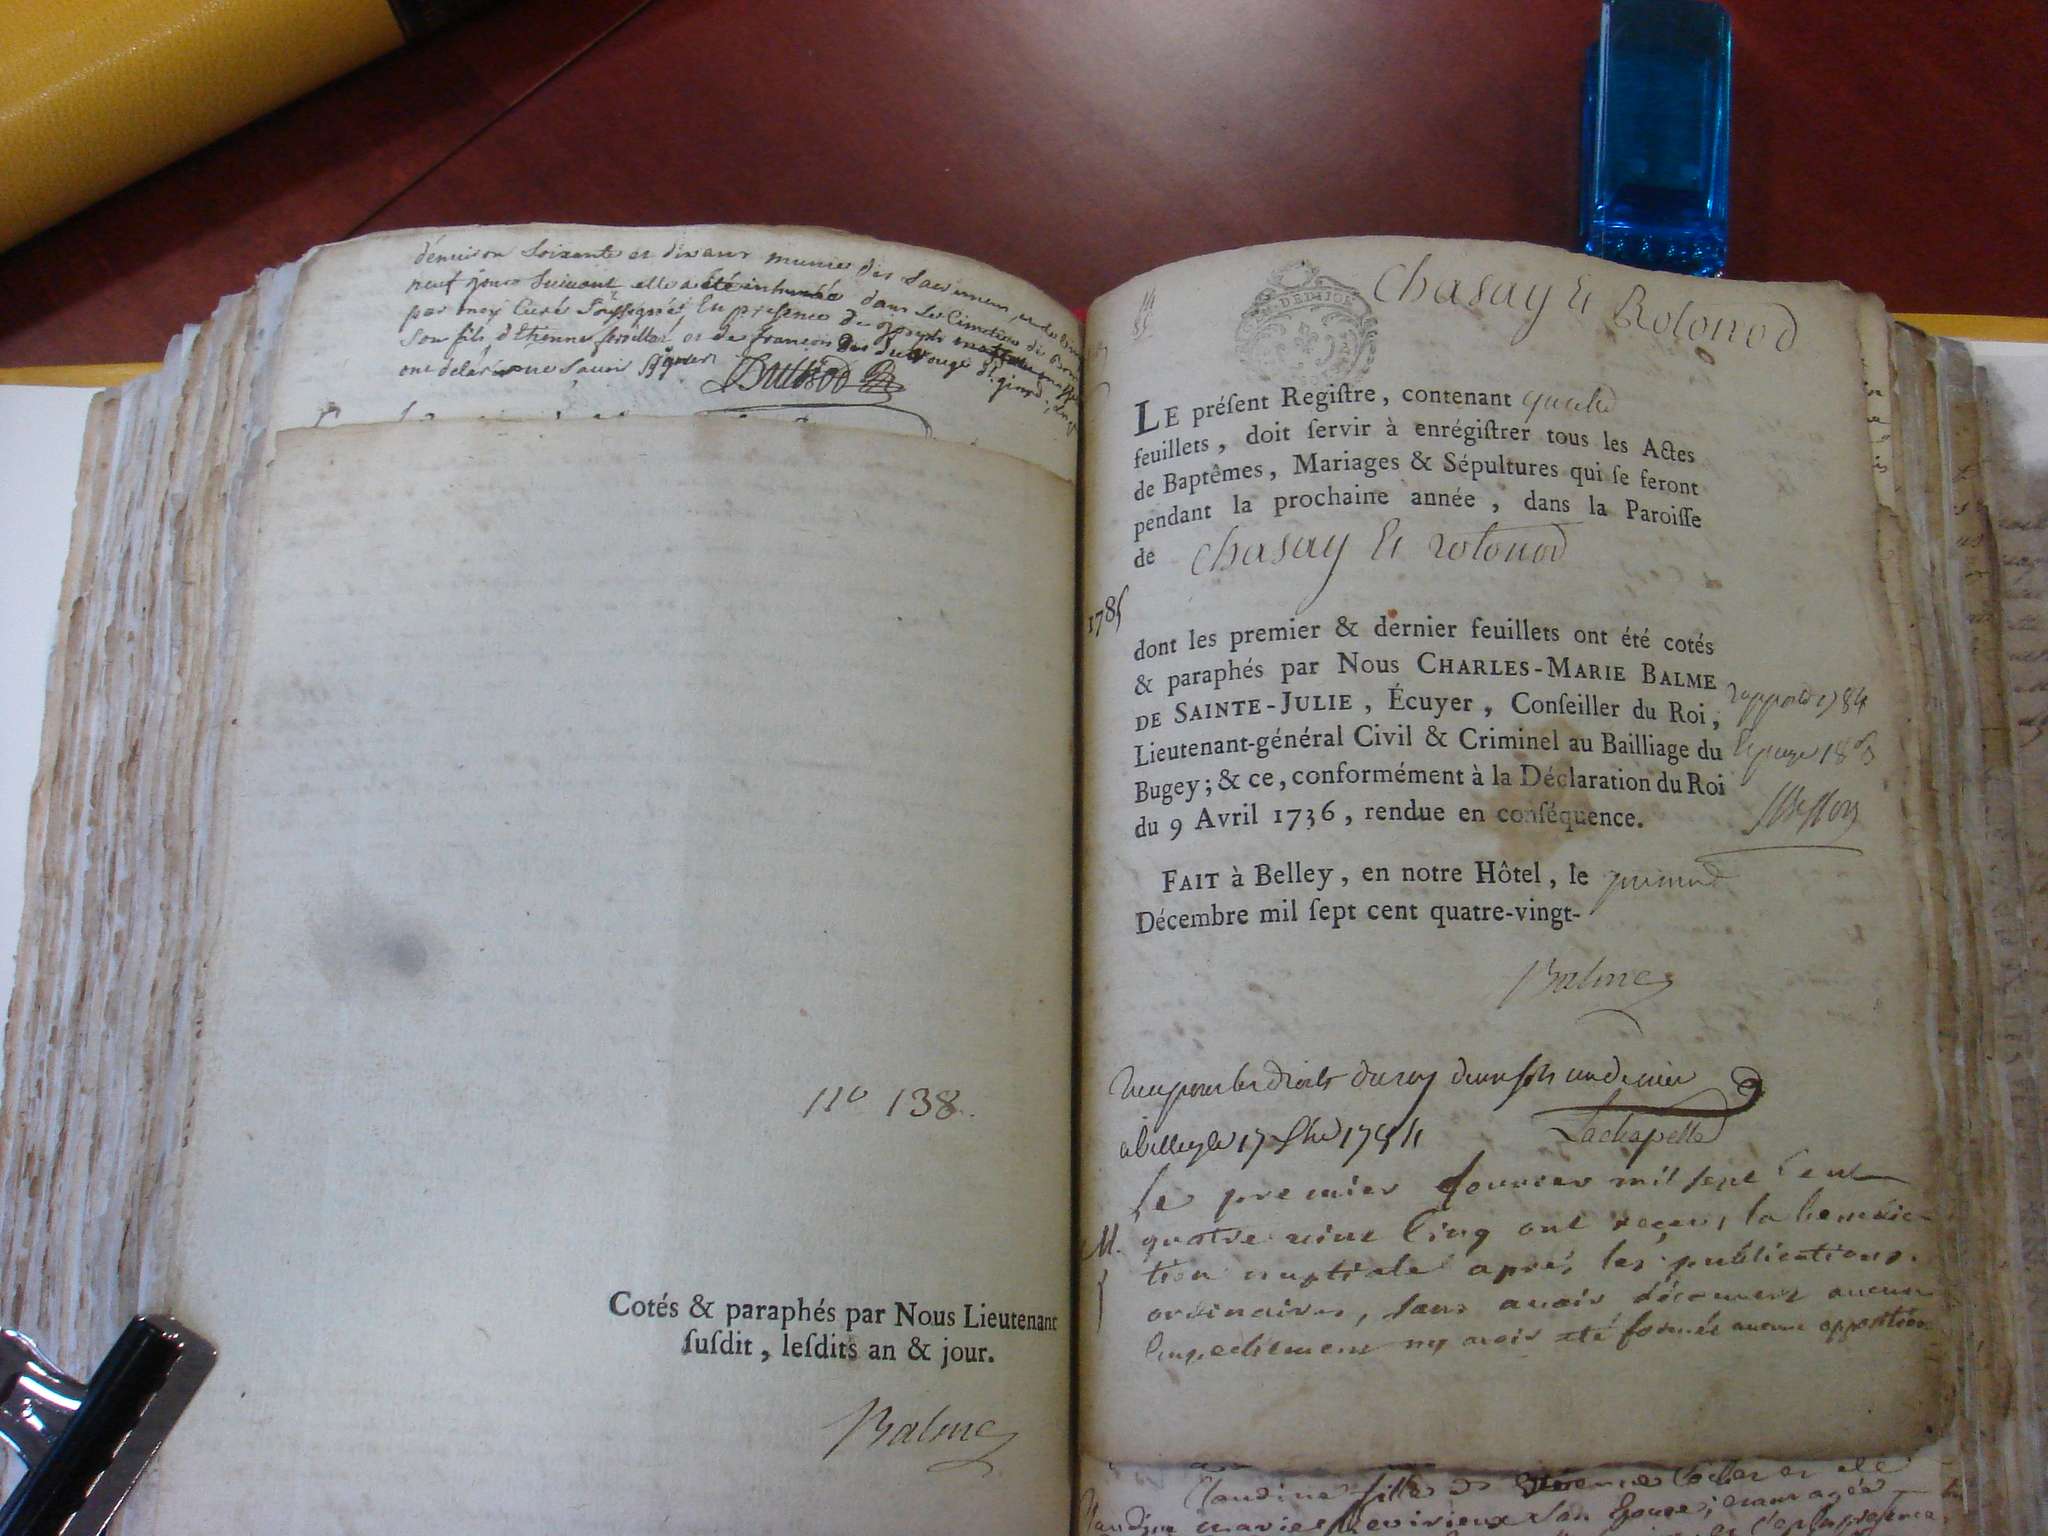 d'environ soixante et dix ans munie des sacremens, et le
neuf jours suivant elle a été inhumée dans le Cimetière de
par moy Curé soussigné, En presence de joseph
son fils d'Etienne et de francois
ont déclaré ne savoir signer
no 138.
Cotés & paraphés par Nous Lieutenant
ſuſdit, leſdits an & jour.
Balme
DE DIJON
Chasay Et Rotonod
LE préſent Regiſtre, contenant quatre
feuillets, doit ſervir à enrégiſtrer tous les Actes
de Baptêmes, Mariages & Sépultures qui ſe feront
pendant la prochaine année, dans la Paroiſſe
de Chasay Et rotonod
1785
dont les premier & dernier feuillets ont été cotés
& paraphés par Nous CHARLES-MARIE BALME
DE SAINTE-JULIE, Écuyer, Conſeiller du Roi,
Lieutenant-général Civil & Criminel au Bailliage du
Bugey; & ce, conformément à la Déclaration du Roi
du 9 Avril 1736, rendue en conſéquence.
FAIT à Belley, en notre Hôtel, le premier
Décembre mil ſept cent quatre-vingt-
Balme
Reçu pour les droits du roy deux sols un denier
a belley le 17 1784 Lachapelle
M. Le premier fevrier mil sept Cent
quatre vint Cinq ont reçeu la benedic-
tion nuptiale après les publications
ordinaires, sans avoir découvert aucun
Empechement ny avoir été formée aucune opposition
Claudine fille de
marie son Epouse;